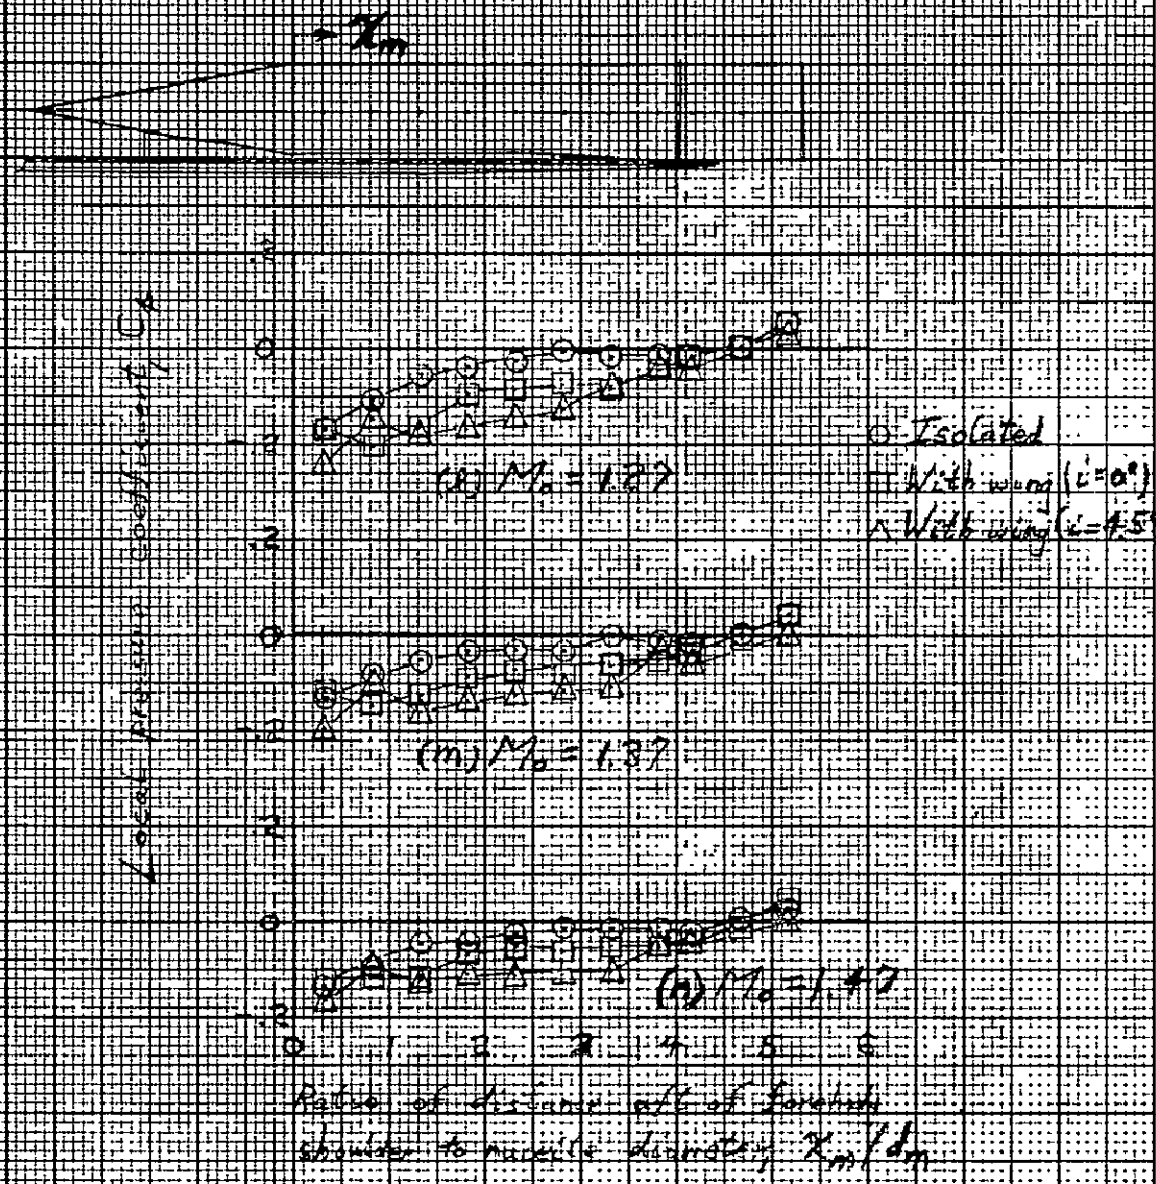 x_m
Local pressure coefficient, C_p
.2
0
-.2
(l) M_o = 1.27
O Isolated
□ With wing (i=0°)
△ With wing (i=4.5°
.2
0
-.2
(m) M_o = 1.37
.2
0
-.2
(n) M_o = 1.47
0 1 2 3 4 5 6
Ratio of distance aft of forebody
shoulder to nacelle diameter, x_m/d_m